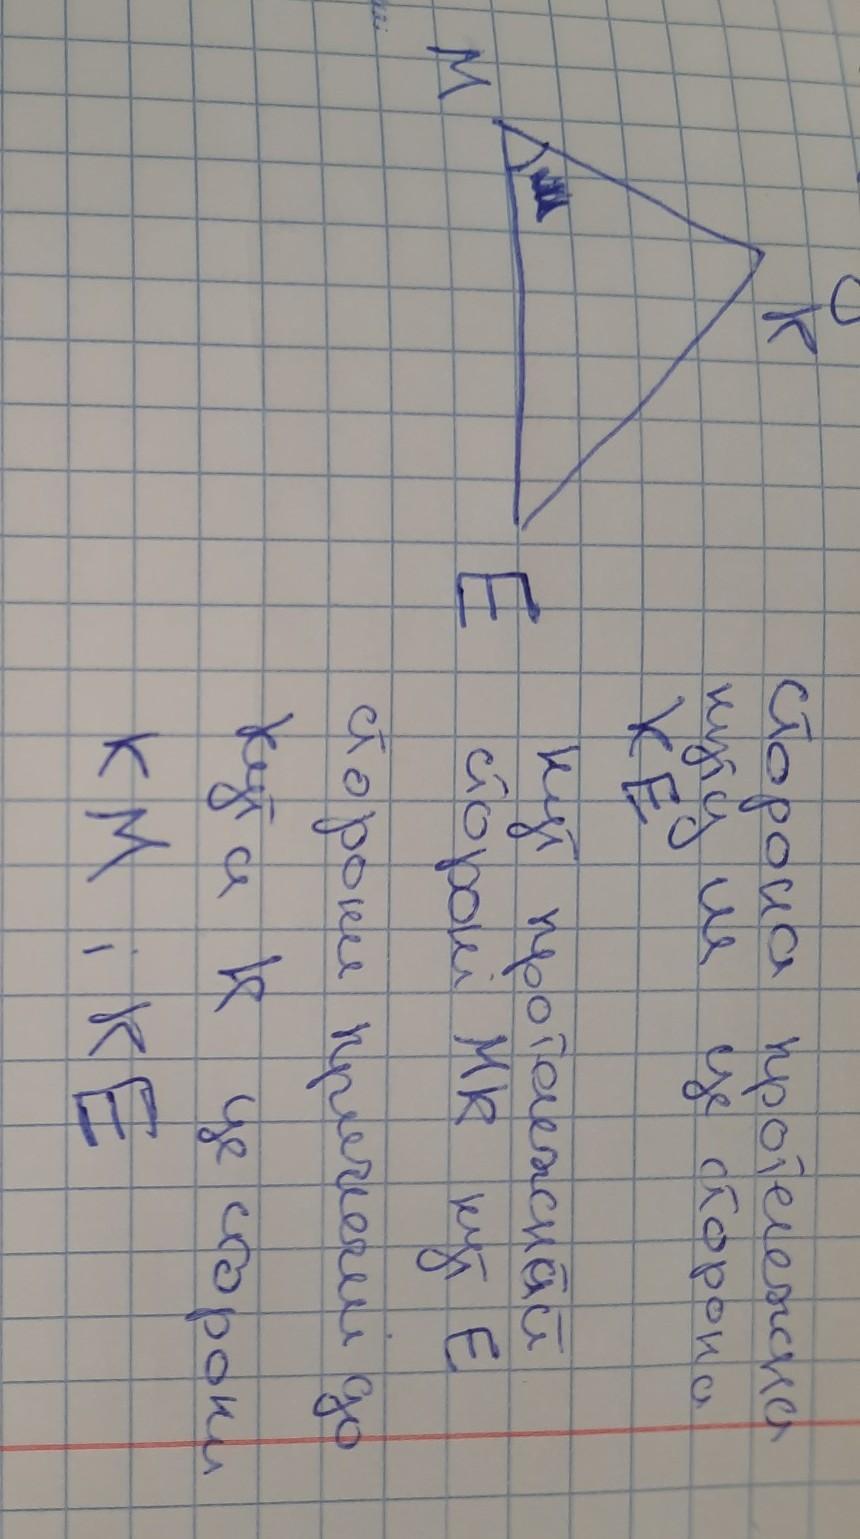 K
M
E
сторона протележна
куту м це сторона
KE
кут протележнай
стороні МК кут Е
сторони прилеглі до
кута К це сторони
КМ і КЕ